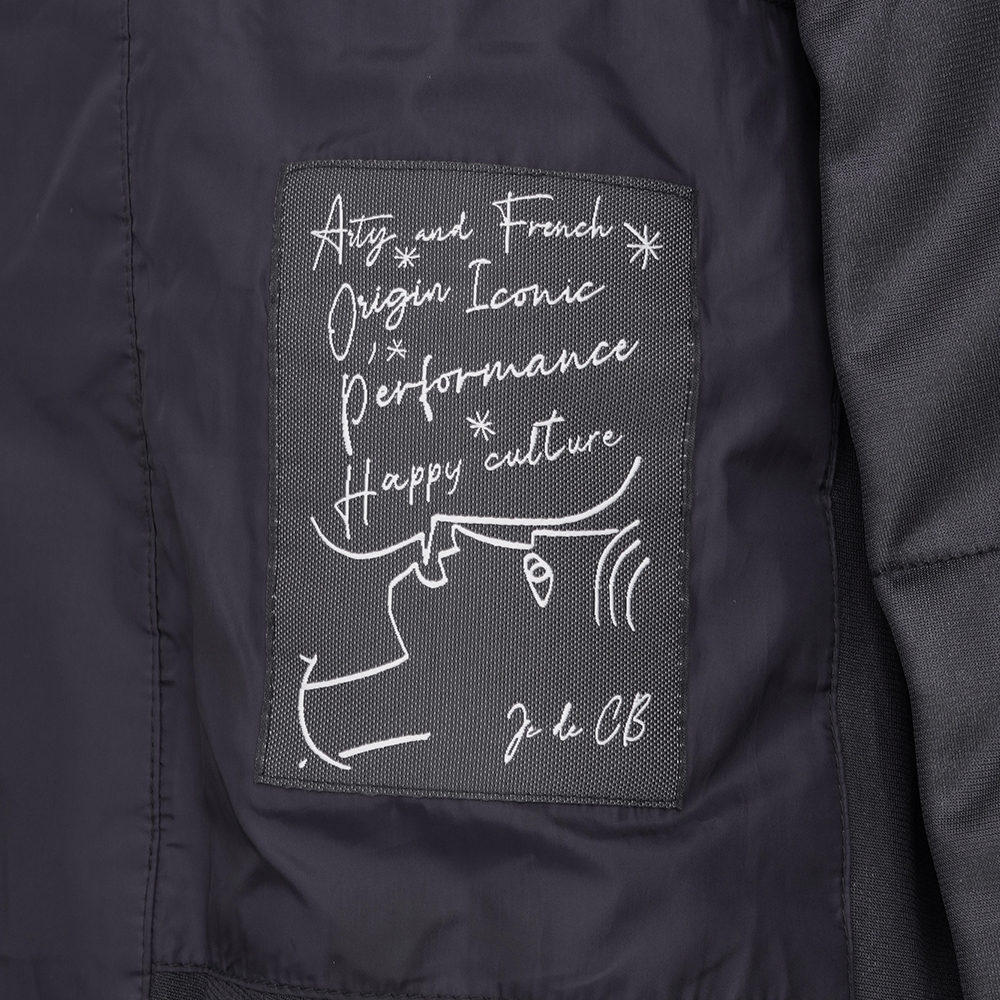 Arty and French
Origin Iconic
Performance
Happy culture
Jc de CB